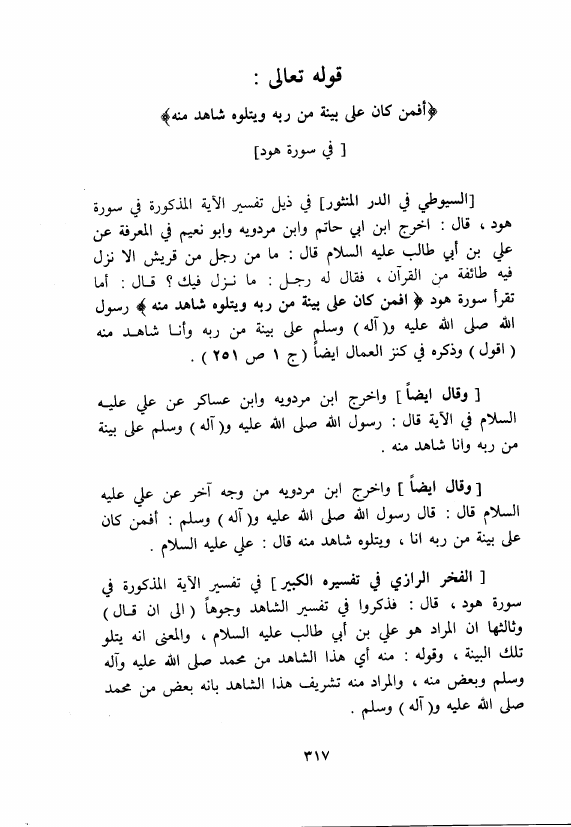 قوله تعالى :
﴿أفمن كان على بينة من ربه ويتلوه شاهد منه﴾
[ في سورة هود]
[السيوطي في الدر المنثور] في ذيل تفسير الآية المذكورة في سورة
هود ، قال : اخرج ابن ابي حاتم وابن مردويه وابو نعيم في المعرفة عن
علي بن أبي طالب عليه السلام قال : ما من رجل من قريش الا نزل
فيه طائفة من القرآن ، فقال له رجل : ما نزل فيك ؟ قال : أما
تقرأ سورة هود ﴿ افمن كان على بينة من ربه ويتلوه شاهد منه ﴾ رسول
الله صلى الله عليه و( آله ) وسلم على بينة من ربه وأنا شاهد منه
( اقول ) وذكره في كنز العمال ايضاً ( ج ١ ص ٢٥١ ) .
[ وقال ايضاً ] واخرج ابن مردويه وابن عساكر عن علي عليه
السلام في الآية قال : رسول الله صلى الله عليه و( آله ) وسلم على بينة
من ربه وانا شاهد منه .
[ وقال ايضاً ] واخرج ابن مردويه من وجه آخر عن علي عليه
السلام قال : قال رسول الله صلى الله عليه و( آله ) وسلم : أفمن كان
على بينة من ربه انا ، ويتلوه شاهد منه قال : علي عليه السلام .
[ الفخر الرازي في تفسيره الكبير ] في تفسير الآية المذكورة في
سورة هود ، قال : فذكروا في تفسير الشاهد وجوهاً ( الى ان قال )
وثالثها ان المراد هو علي بن أبي طالب عليه السلام ، والمعنى انه يتلو
تلك البينة ، وقوله : منه أي هذا الشاهد من محمد صلى الله عليه وآله
وسلم وبعض منه ، والمراد منه تشريف هذا الشاهد بانه بعض من محمد
صلى الله عليه و( آله ) وسلم .
٣١٧